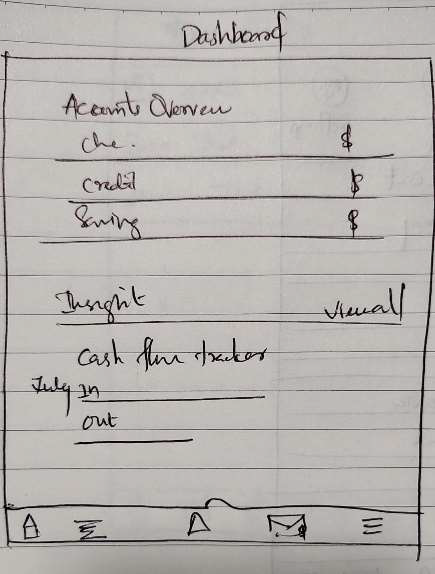 Dashboard
Accounts Overview
Che. $
Credit $
Saving $
Insight View all
Cash flow tracker
July In
Out